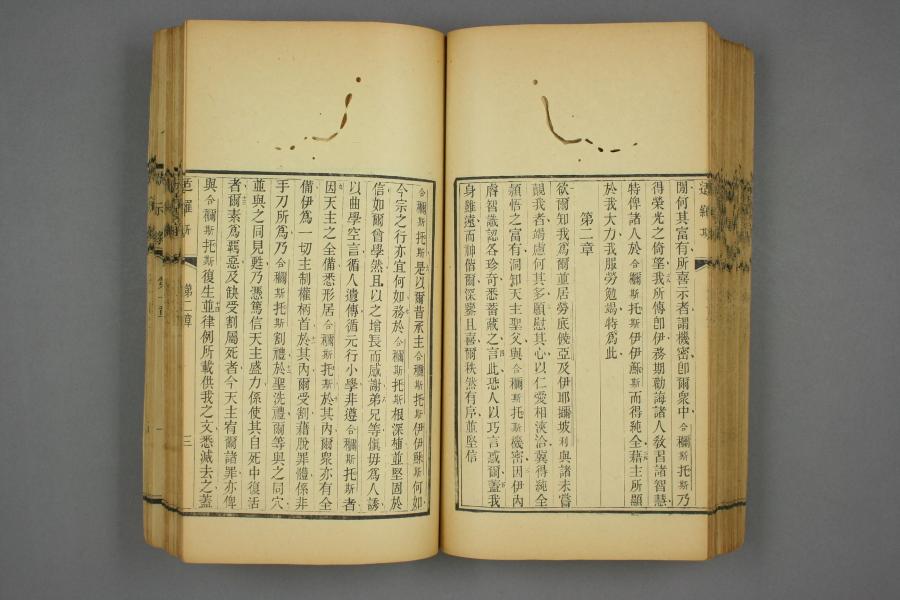 間何其富有所喜示者謂機密卽爾衆中合穪斯托斯乃
得榮光之倚望我所傳卽伊務期勸誨諸人教習諸智慧
特俾諸人於合穪斯托斯伊伊穌斯而得純全藉主所顯
於我大力我服勞勉竭特爲此
第二章
欲爾知我爲爾並居勞底偠亞及伊耶擶坡利與諸未嘗
覩我者竭慮何其多願慰其心以仁愛相浹洽冀得純全
頴悟之富有洞知天主聖父與合穪斯托斯機密因伊內
睿智識認各珍奇悉蓄藏之言此恐人以巧言惑爾蓋我
身雖遠而神偕爾深鑒且喜爾秩然有序並堅信
合穪斯托斯是以爾昔承主合穪斯托斯伊伊穌斯何如
今宗之行亦宜何如務於合穪斯托斯根深植並堅固於
信如爾曾學然且以之增長而感謝弟兄等愼毋爲人誘
以曲學空言循人遺傳循元行小學非遵合穪斯托斯者
因天主之全備悉形居合穪斯托斯於其內爾衆亦有全
備伊爲一切主制權柄首於其內爾受割藉脫罪體係非
手刀所爲乃合穪斯托斯割禮於聖洗禮爾等與之同穴
並與之同見甦乃憑篤信天主感力係使其自死中復活
者爾素爲罪惡及缺受割屬死者今天主宥爾諸罪亦俾
與合穪斯托斯復生並律例所載供我之文悉滅去之蓋
羅斯
第二章
三